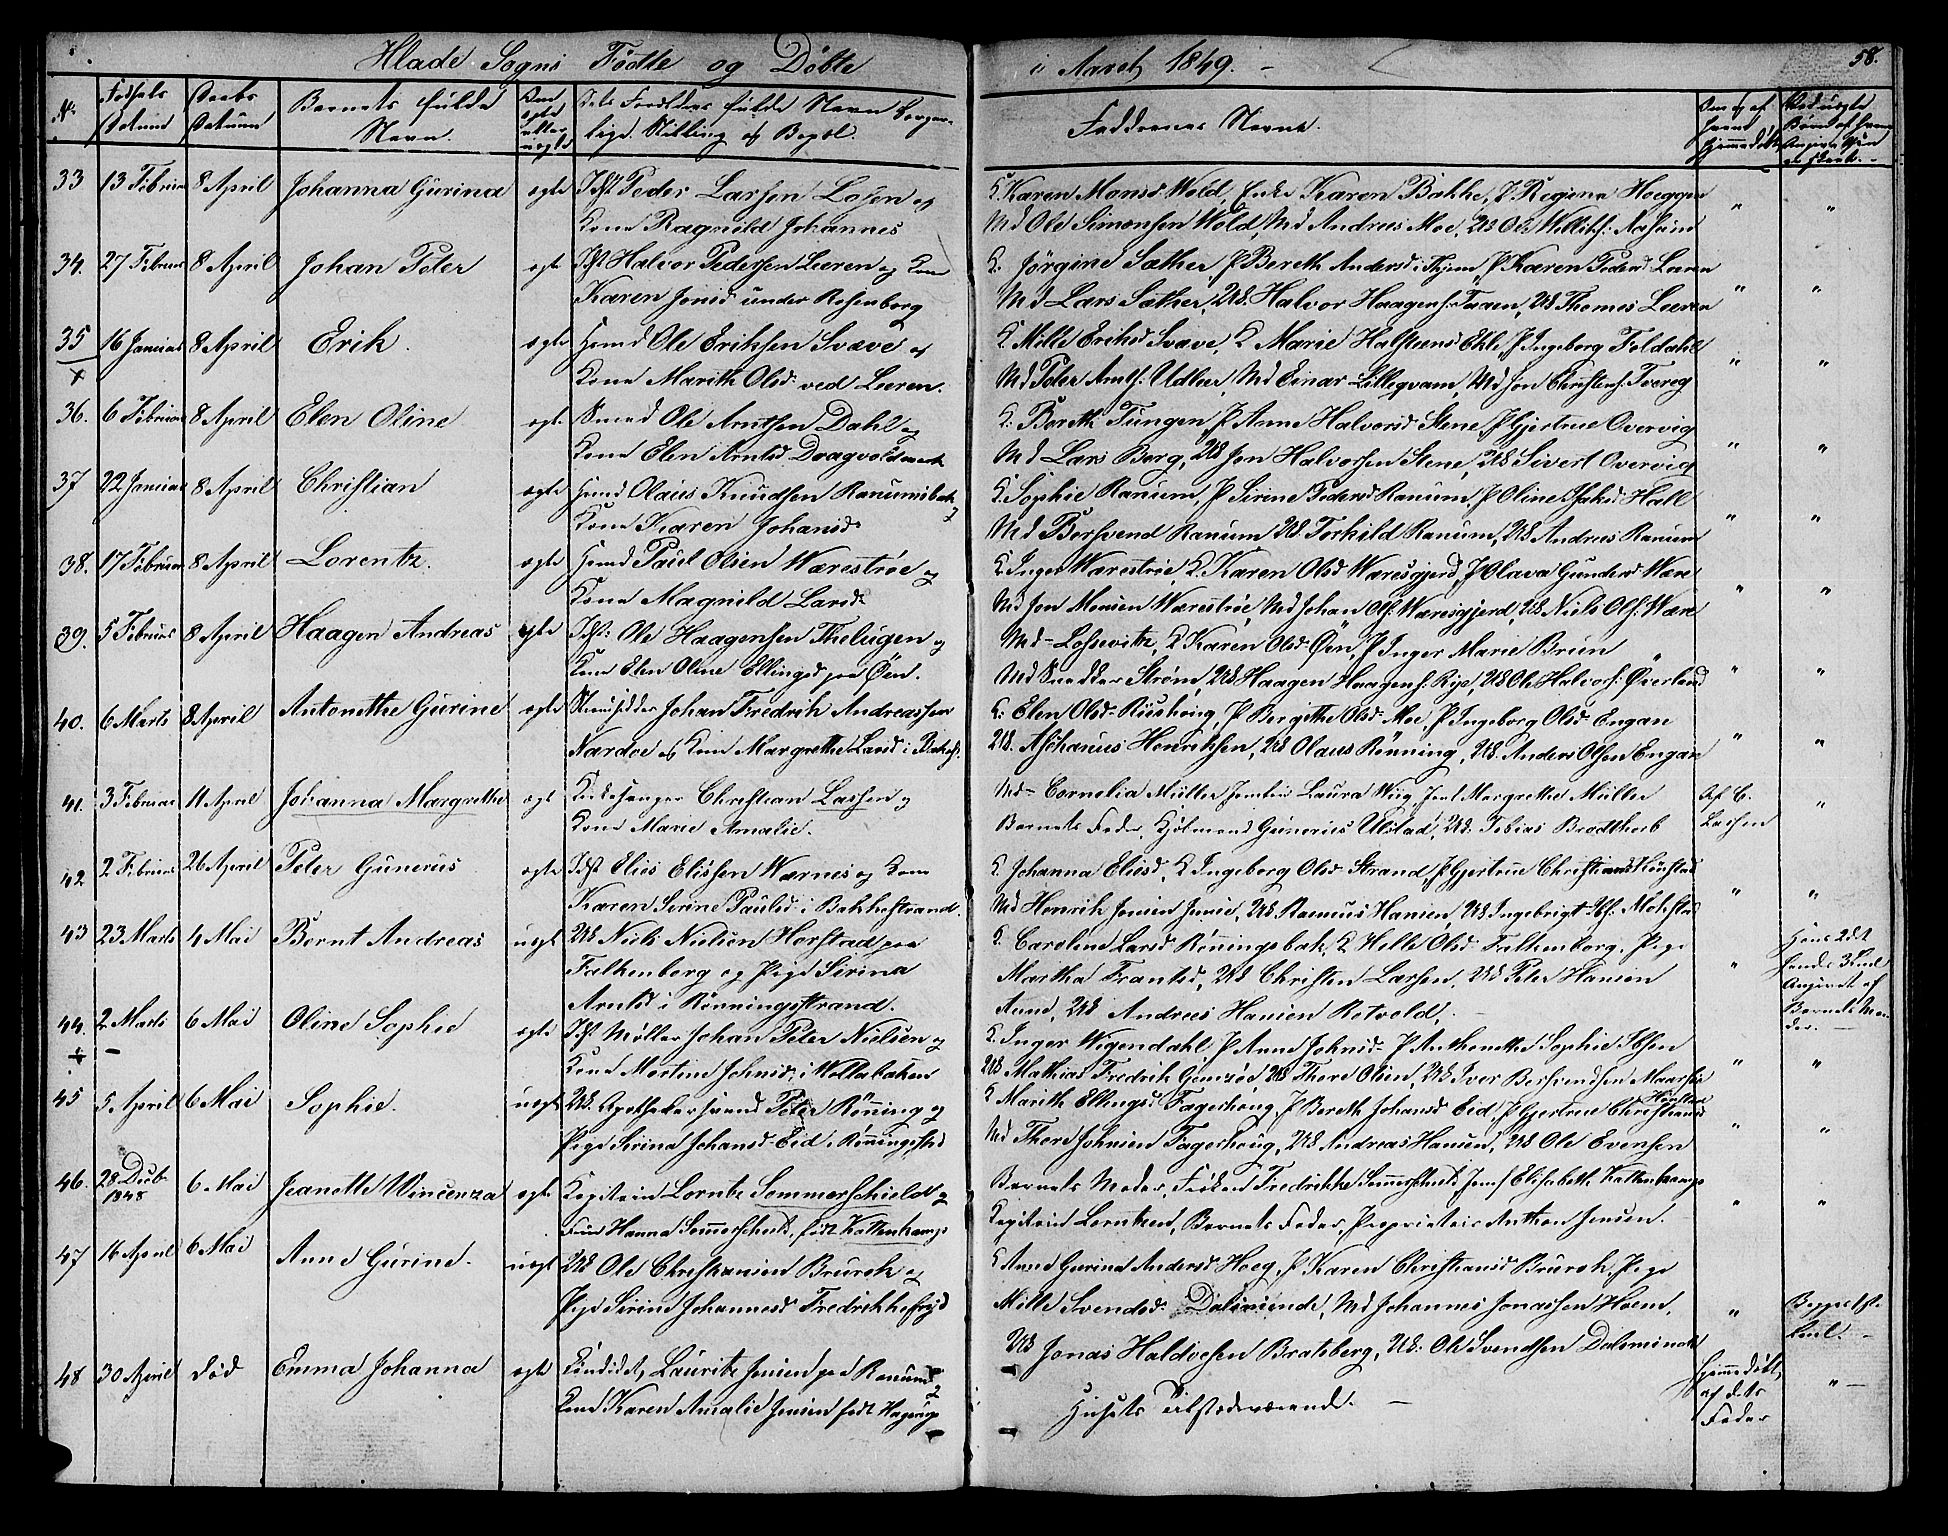 Hlade Sogns Fødte og Døbte
i Aaret 1849. 58.
No Fødsels Datum Daabs Datum Barnets fulde Navn. Om ægte eller uægte Dets Forældres fulde Navn Borgerlige Stilling og Bopæl. Faddernes Navne.
33 13 Februar 8 April Johanna Gurina ægte Idst Peder Larsen Losen og
Kone Ragnild Johannes
K. Karen Monsd Wold, Enke Karen Bakke, P Regina Hoeggen
Md Ole Simonsen Wold, Md Andreas Moe, UK Ole
34. 27 Februar 8 April Johan Peter ægte Idst Halvor Pedersen Leeren og Kone
Karen Jonsd under Rosenborg
K. Jørgine Sæther, P Bereth Andersd, P Karen Pedersd Leeren
Md Lars Sæther, UK. Halvor Haagens:, UK Thomas Leeren
35 16 Januar 8 April Erik. ægte Hmd Ole Eriksen Svæve og
Kone Marith Olsd: ved Leeren.
K Mille Eriksd Svæve, K Marie Halsteens Ekle, P Ingeborg Foldahl
Md Peter Arnts: Udleer, Md Einar Lillegvam, Md Jon Christens: Tvereg
36. 6 Februar 8 April Elen Oline ægte Smed Ole Arntsen Dahl og
Kone Elen Arntsd Dragvold
K. Bereth Tungen, P Anne Halvorsd Stene, P Gjertrue Overvig
Md Lars Berg, UK Jon Halvorsen Stene, UK Sivert Overvig
37 22 Januar 8 April Christian ægte Hmd Olaus Knudsen Ranumsbak
Kone Karen Johansd:
K Sophie Ranum, P Sirine Pedersd Ranum, P Oline Hall
Md Borsvend Ranum UK. Torkild Ranum, UK Andreas Ranum
38. 17 Februar 8 April Lorentz. ægte Hmd Paul Olsen Værestrøe og
Kone Magnild Larsd:
K. Inger Værestrøe, K. Karen Olsd Væresgjerd, P Olava Gundersd Være
Md Jon Monsen Værestrøe, Md Johan Ols: Væresgjerd, UK Niels Ols: Være
39. 5 Februar 8 April Haagen Andreas ægte Idst: Ole Haagensen Thelugen og
Kone Elen Oline Ellingsd paa Øen.
Md- Lossevitz, K Karen Olsd Øen, P Inger Marie Bruun
Md Strøm, UK Haagen Haagens: Rye, UK Ole Halvors: Øverland
40. 6 Marts 8 April Antonette Gurine ægte Huusfader Johan Fredrik Andreassen
Nardoe og Kone Margrethe Larsd i Bak
K: Elen Olsd Riishoug, P Bergithe Olsd Moe P Ingeborg Olsd Engan
UK. Aschanius Henriksen, UK Olaus Rønning, UK. Anders Olsen Engan
41. 3 Februar 11 April Johanna Margrethe ægte Kirkesanger Christian Lassen og
Kone Marie Amalie.
Md- Cornelia Müller Jomfru Laura Wiig, Jomf Margrethe Müller
Barnets Fader, Gunerius Ulstad, UK. Tobias Brodtkorb
Af C.
Lassen
42 2 Februar 26 April Peter Gunerus ægte Idst Elias Elissen Værnes og Kone
Karen Serine Paulsd i Bakkestrand.
K Johanna Eliesd, K Ingeborg Olsd Strand, P Gjertrue Christiansd
Md Henrik Jensen, UK Rasmus Hansen, UK Ingebrigt
43 23 Marts 4 Mai Bernt Andreas uægt UK Niels Nielsen Horstad paa
Falkenborg og Pige Sirina
Arntsd i Rønningsstrand.
K. Caroline Larsd Rønningsbak, K Helle Olsd Falkenborg, Pige
Martha Frantsd, UK Christen Larsen, UK Peter Hansen
Aune, UK Andreas Hansen Rotvold,
Hans 2det
hendes 3die
Angivet af
Barnets Moder.
44. 2 Marts 6 Mai Oline Sophie ægte Idst Møller Johan Peter Nielsen og
Kone Martine Johnsd: i Wollabaken
K. Inger Wigendahl, P Anne Johnsd- P Anthonette Sophie Ibsen
UK Mathias Fredrik, UK Thore Olsen, UK Iver Borsvendsen
45 5 April 6 Mai Sophie. uægte UK. Apothekersvend Peter Rønning og
Pige Sirina Johansd Eid i
K Marith Ellingsd Fagerhoug, P Bereth Johansd Eid, P Gjertrue Christiansd
Md Thore Johnsen Fagerhoug, UK Andreas Hansen, UK Ole Evensen
46. 28 Decb 1848 6 Mai Jeanette Wincenza ægte Kapitain Lorntz Sommerschield og
Frue Hanna Sommerschield, født
Barnets Moder, Frøken Fredrikke Sommerschield, Jomf Elisabeth
Kapitain Lorntzen, Barnets Fader, Proprietair Anthon Jensen.
47 16 April 6 Mai Anne Gurine. uægt UK Ole Christiansen Brurok og
Pige Sirine Johannesd Fredrikkefryd
K Anne Gurina Andersd Hoeg, P Karen Christiansd Brurok, Pige
Mille Svendsd: Dalsminde, Md Johannes Jonassen Hoem,
UK Jonas Haldorsen Bratsberg, UK: Ole Svendsen Dalsminde
Begges 1ste
48 30 April død Emma Johanna ægte Lauritz Jensen paa Ranum
Kone Karen Amalie Jensen født Hagerup
Husets Tilstedeværende.
Hjemmedøbt
af dets
Fader